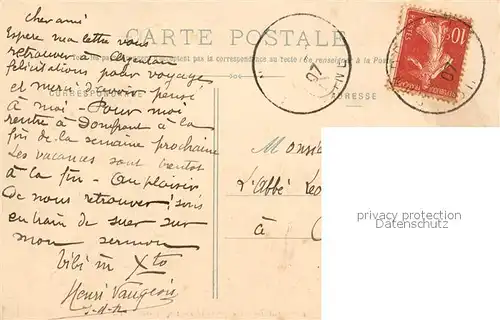 Cher ami
Espère ma lettre vous
retrouver à Argentan
félicitations pour voyage
et merci d'avoir pensé
à moi - Pour moi
rentre à Domfront à la
fin de la semaine prochaine
Les vacances sont bientôt
à la fin - Au plaisir
de nous retrouver ! suis
en train de suer sur
mon sermon
tibi in Xto
Henri Vaugeois
CARTE POSTALE
CORRESPONDANCE
ADRESSE
10
Monsie
L'Abbé Les
à
privacy protection
Datenschutz